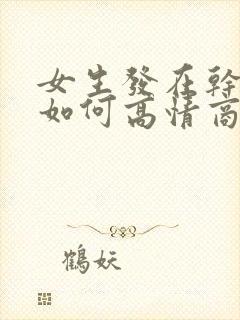 女生發在幹
如何高情商
鶴妖